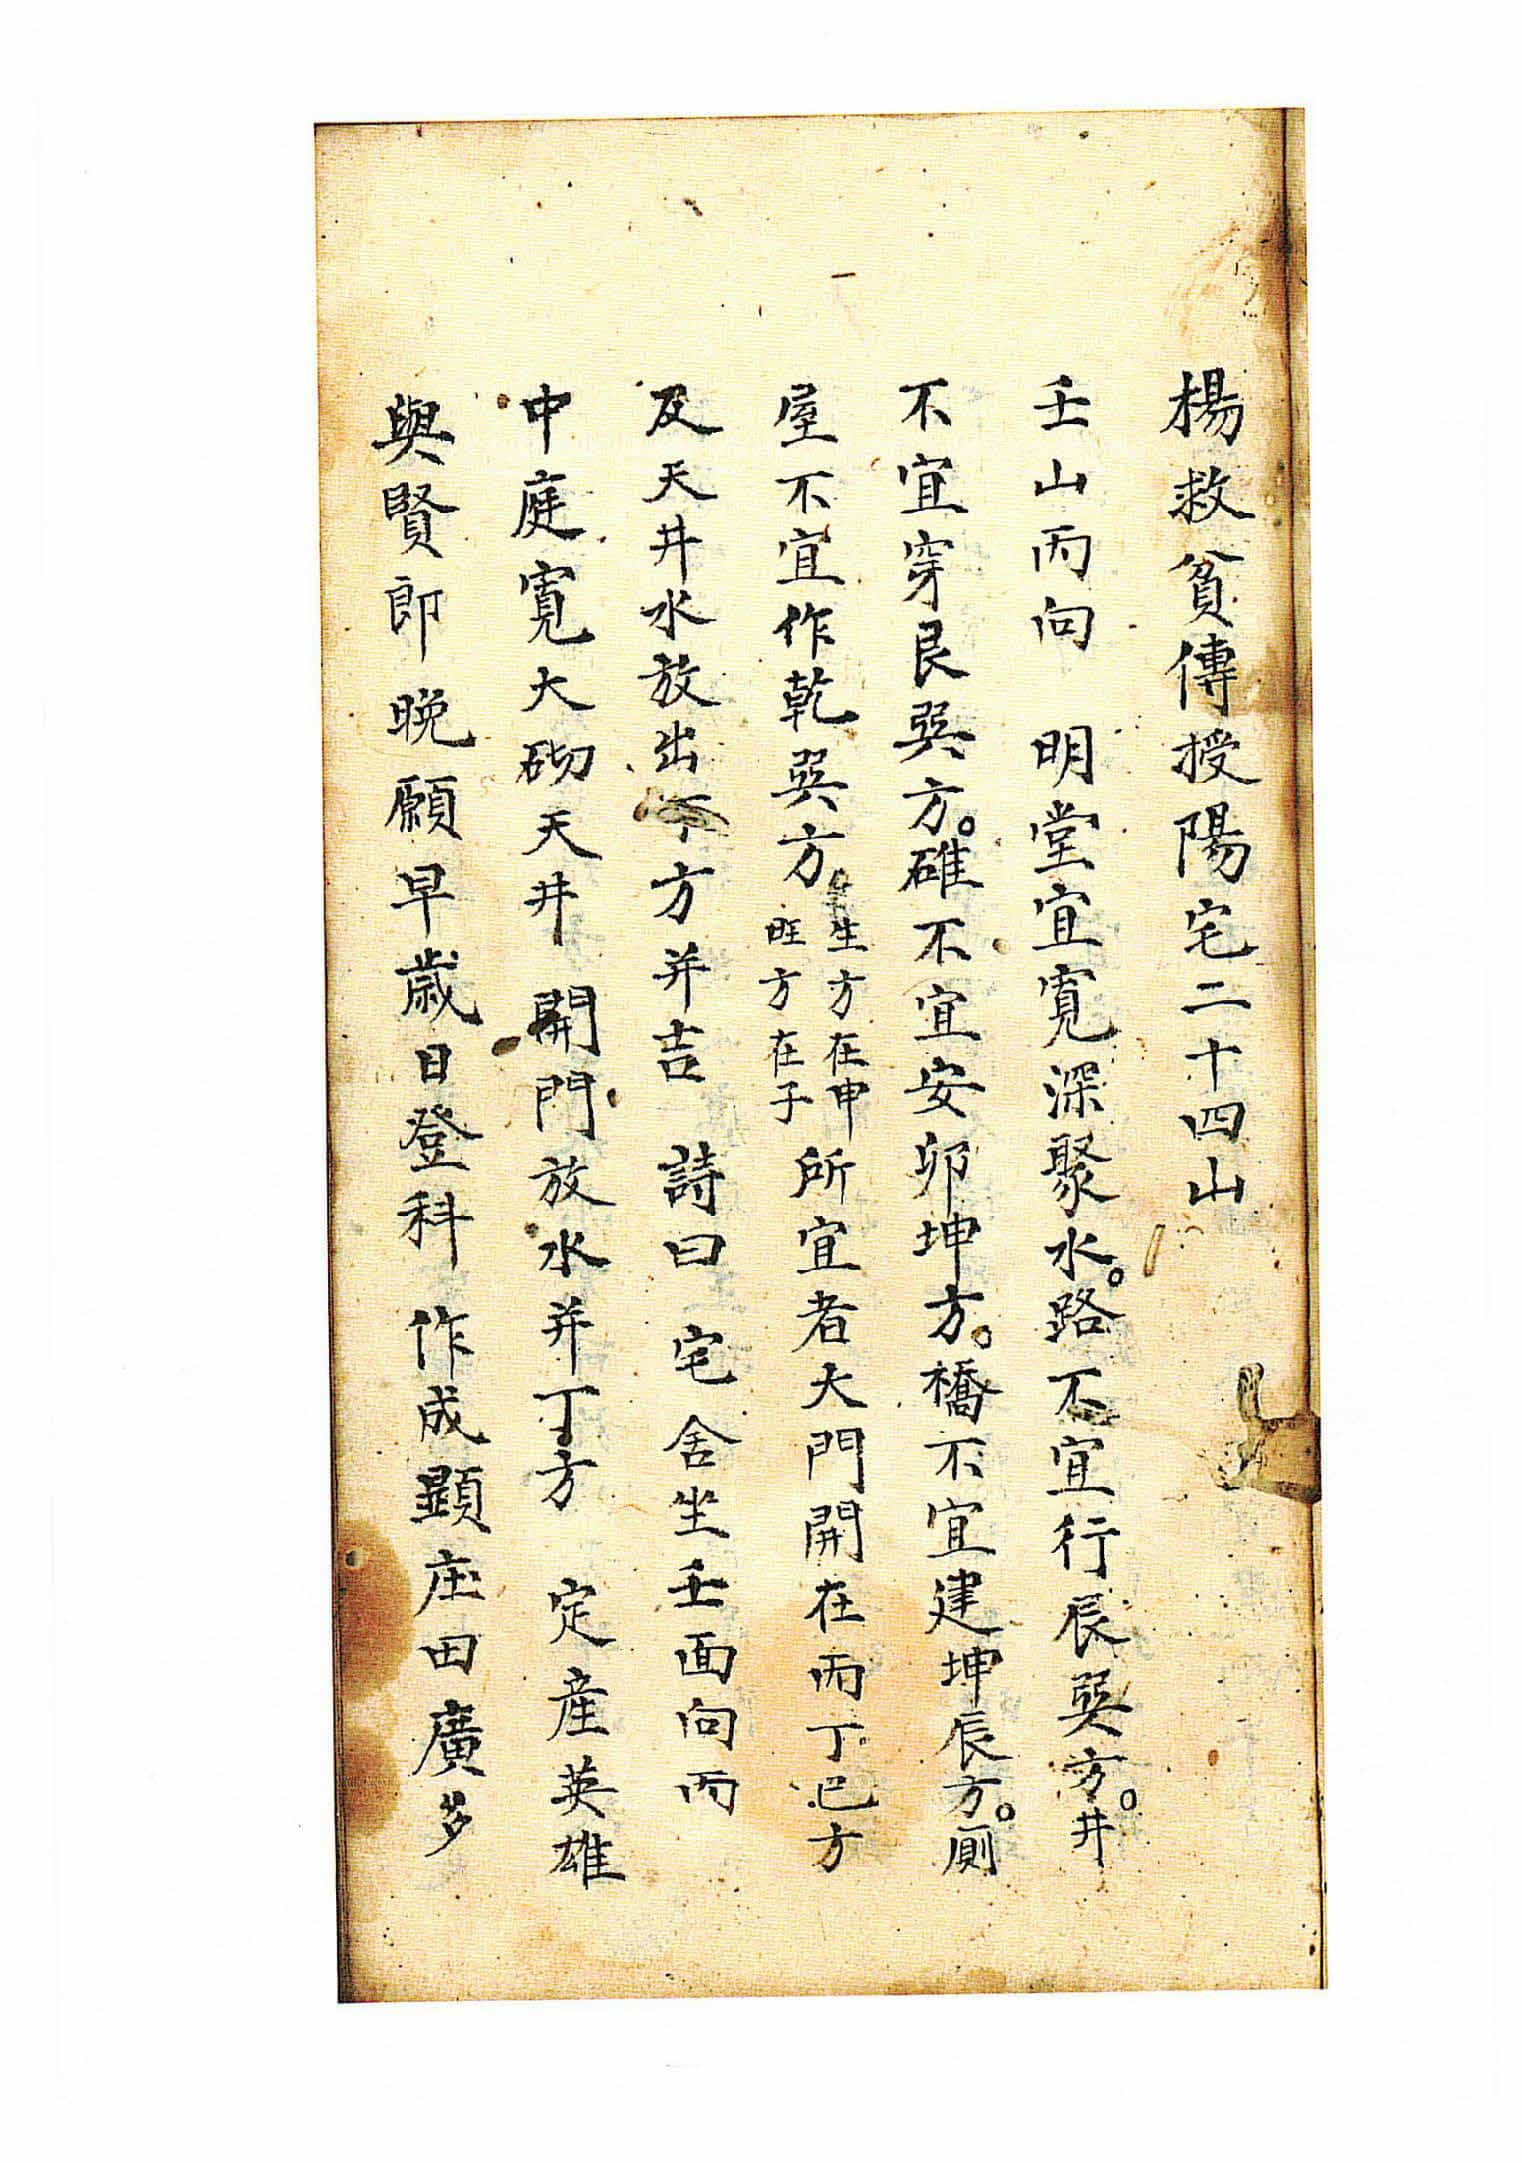 楊救貧傳授陽宅二十四山
壬山丙向　明堂宜寬深聚水。路不宜行辰巽方。井
不宜穿艮巽方。碓不宜安卯坤方。橋不宜建坤辰方。厠
屋不宜作乾巽方。生方在申
旺方在子
所宜者大門開在丙丁巳方
及天井水放出丁方并吉　詩曰　宅舍坐壬面向丙
中庭寬大砌天井　開門放水并丁方　定産英雄
與賢郎　晚願早歲日登科　作成顕庄田廣多